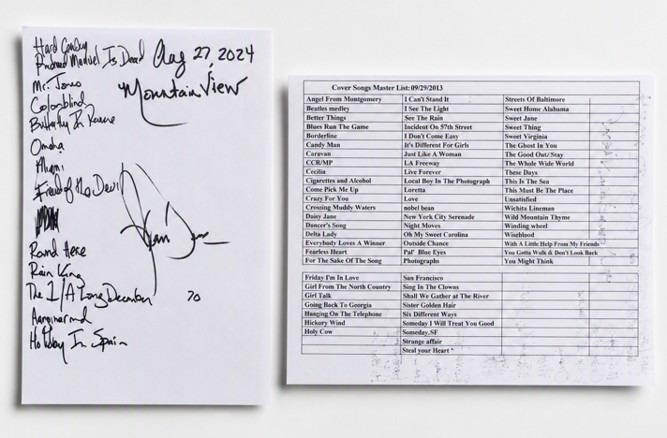 Hard Candy
Richard Manuel Is Dead
Aug 27, 2024
Mountain View
Mr. Jones
Colorblind
Butterfly In Reverse
Omaha
Miami
Friend of the Devil
Round Here
Rain King
The 1/A Long December
70
Hanginaround
Holiday In Spain
Cover Songs Master List: 09/29/2013
Angel From Montgomery I Can't Stand It Streets of Baltimore
Beatles medley I See The Light Sweet Home Alabama
Better Things See The Rain Sweet Jane
Blues Run The Game Incident On 57th Street Sweet Thing
Borderline I Don't Come Easy Sweet Virginia
Candy Man It's Different For Girls The Ghost In You
Caravan Just Like A Woman The Good Out/ Stay
CCR/MP LA Freeway The Whole Wide World
Cecilia Live Forever These Days
Cigarettes and Alcohol Local Boy In The Photograph This Is The Sea
Come Pick Me Up Loretta This Must Be The Place
Crazy For You Love Unsatisfied
Crossing Muddy Waters nobel bean Wichita Lineman
Daisy Jane New York City Serenade Wild Mountain Thyme
Dancer's Song Night Moves Winding wheel
Delta Lady Oh My Sweet Carolina Wiseblood
Everybody Loves A Winner Outside Chance With A Little Help From My Friends
Fearless Heart Pal' Blue Eyes You Gotta Walk & Don't Look Back
For The Sake Of The Song Photographs You Might Think
Friday I'm In Love San Francisco
Girl From The North Country Sing In The Clowns
Girl Talk Shall We Gather at The River
Going Back To Georgia Sister Golden Hair
Hanging On The Telephone Six Different Ways
Hickory Wind Someday I Will Treat You Good
Holy Cow Someday, SF
Strange affair
Steal your Heart "